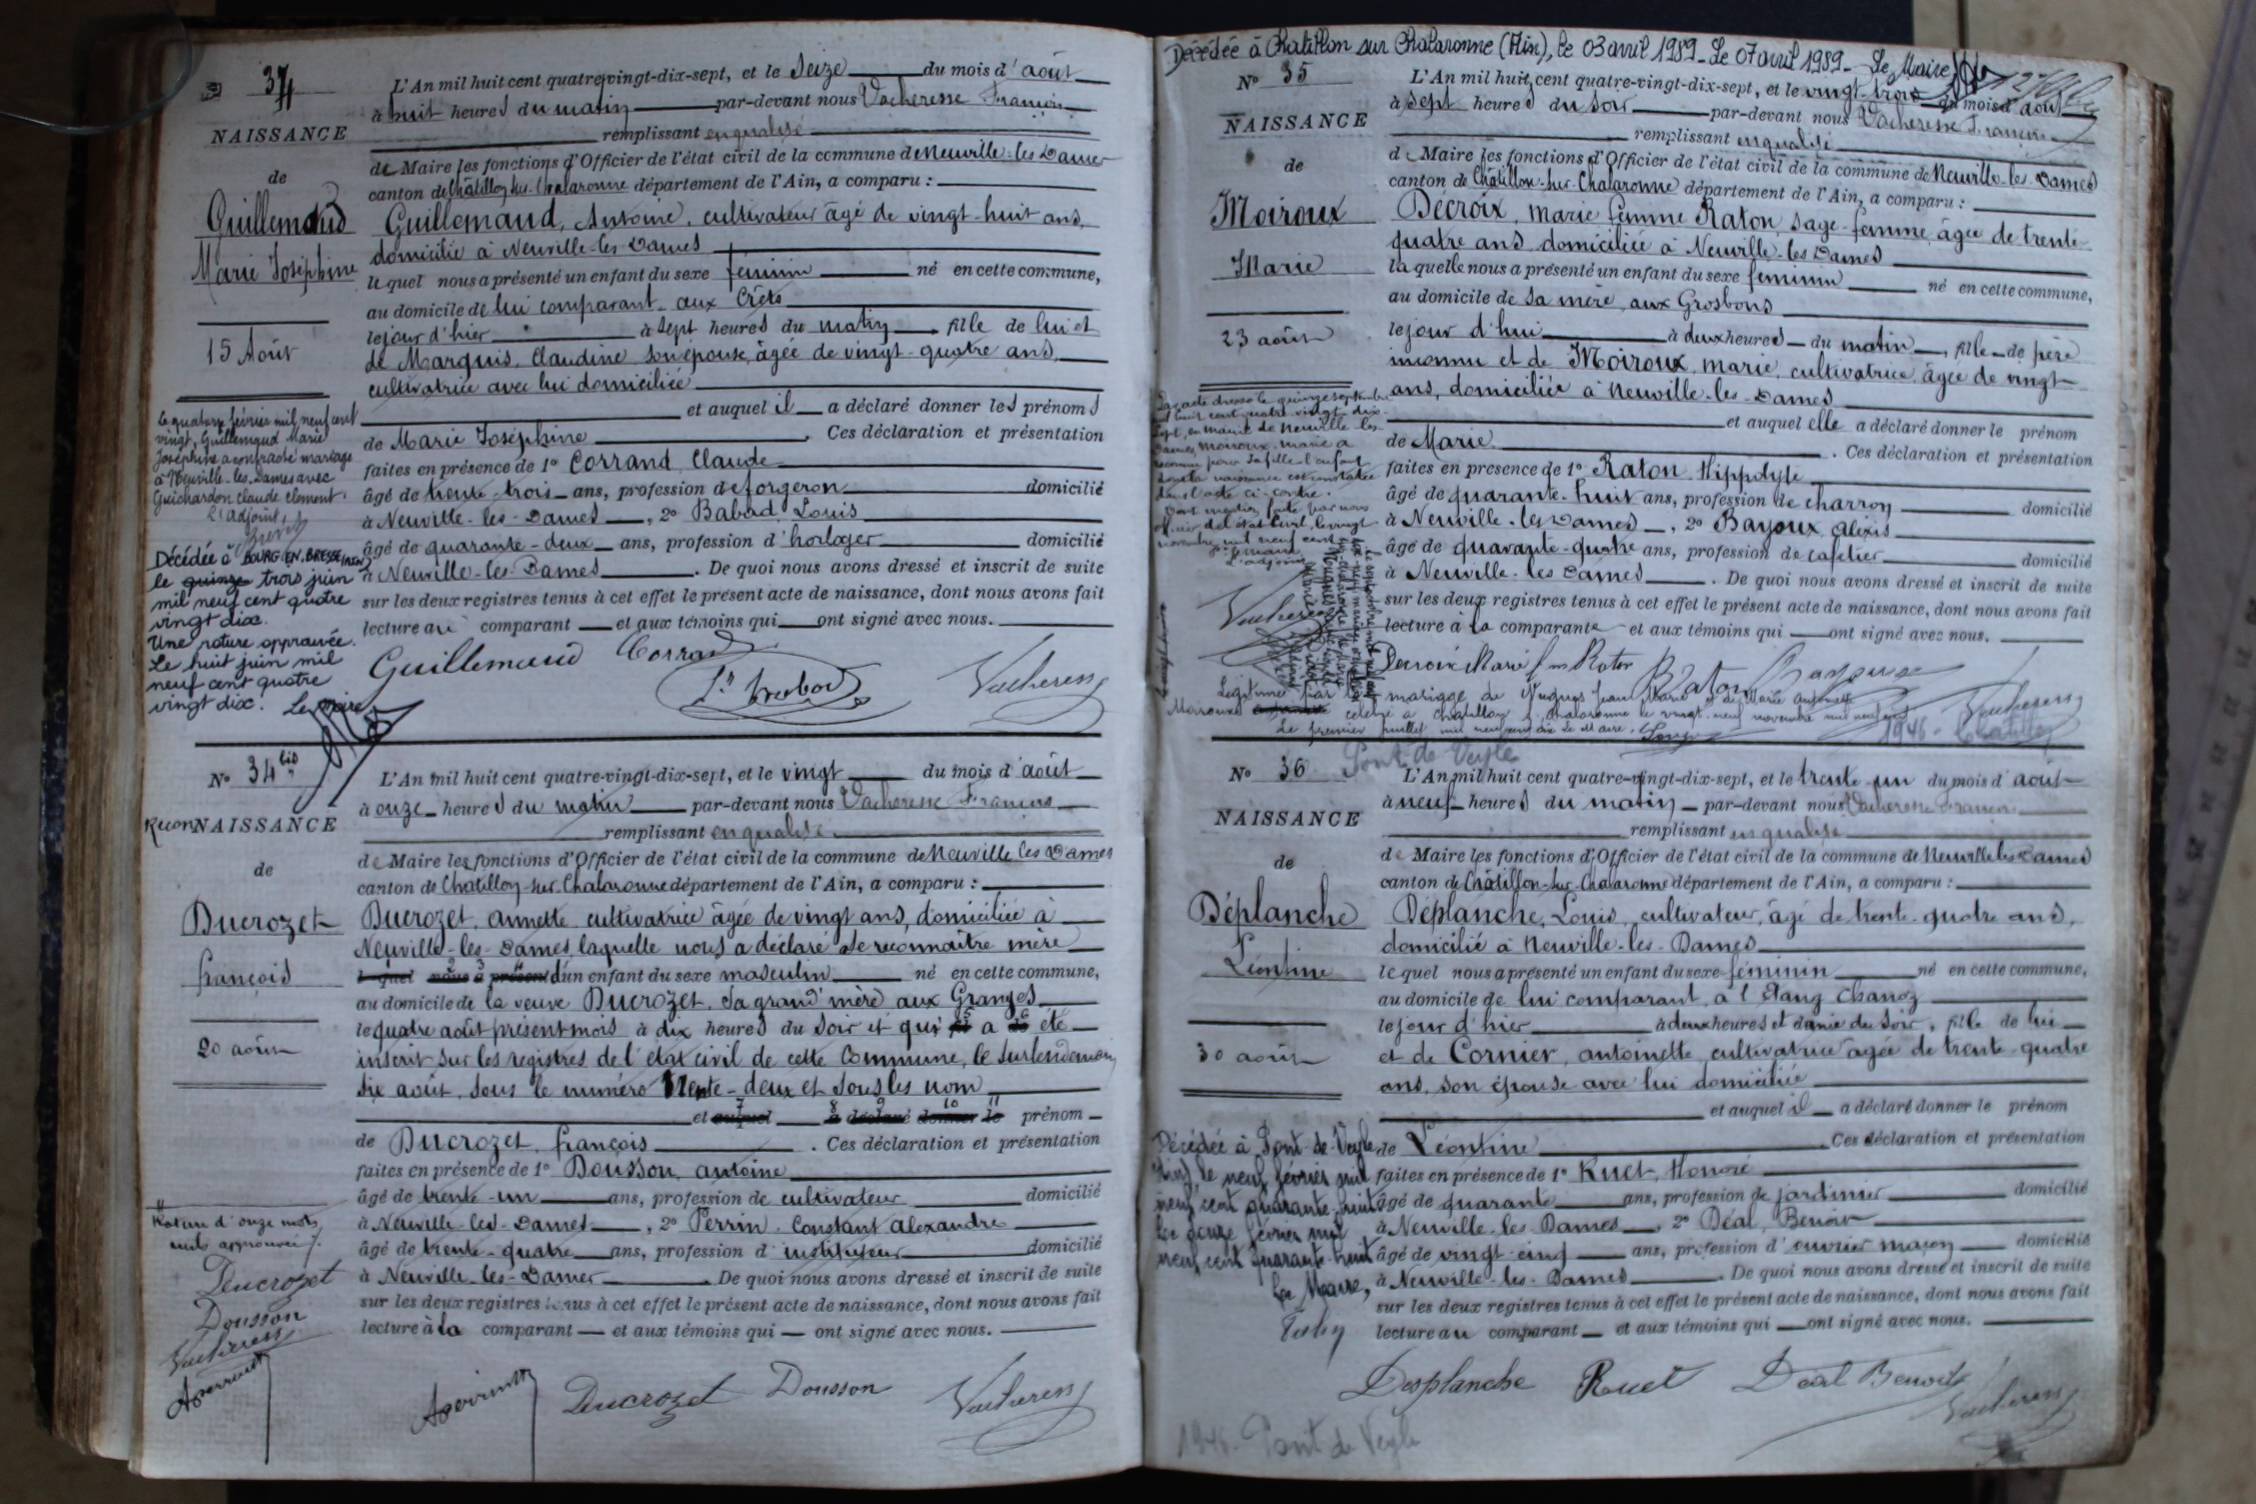 34
NAISSANCE
de
Guillemaud
Marie Joséphine
15 Août
Le quatorze février mil neuf cent
vingt, Guillemaud Marie
Joséphine a contracté mariage
à Neuville-les-Dames avec
Guichardon Claude Clément.
L'adjoint,
Décédée à BOURG EN BRESSE (Ain)
le quinze trois juin
mil neuf cent quatre
vingt dix.
Une rature approuvée.
Le huit juin mil
neuf cent quatre
vingt dix. Le Maire
L'An mil huit cent quatre-vingt-dix-sept, et le Seize du mois d'août
à huit heures du matin par-devant nous Vacheresse François
remplissant en qualité
de Maire les fonctions d'Officier de l'état civil de la commune de Neuville-les-Dames
canton de Châtillon-sur-Chalaronne département de l'Ain, a comparu :
Guillemaud, Antoine, cultivateur âgé de vingt-huit ans,
domicilié à Neuville-les-Dames
lequel nous a présenté un enfant du sexe féminin né en cette commune,
au domicile de lui comparant aux Crêts
le jour d'hier à sept heures du matin, fille de lui et
de Marguis, Claudine son épouse, âgée de vingt-quatre ans,
cultivatrice avec lui domiciliée
et auquel il a déclaré donner les prénoms
de Marie Joséphine. Ces déclaration et présentation
faites en présence de 1° Corrand, Claude
âgé de trente-trois ans, profession de forgeron domicilié
à Neuville-les-Dames, 2° Babad, Louis
âgé de quarante-deux ans, profession d'horloger domicilié
à Neuville-les-Dames. De quoi nous avons dressé et inscrit de suite
sur les deux registres tenus à cet effet le présent acte de naissance, dont nous avons fait
lecture au comparant et aux témoins qui ont signé avec nous.
Guillemaud Corrand
Vacheresse
N° 34 bis
ReconNAISSANCE
de
Ducrozet
françois
20 août
Rature d'onze mots
nuls approuvée
Ducrozet
Dousson
Vacheresse
Aperrin
L'An mil huit cent quatre-vingt-dix-sept, et le vingt du mois d'août
à onze heures du matin par-devant nous Vacheresse François
remplissant en qualité
de Maire les fonctions d'Officier de l'état civil de la commune de Neuville les Dames
canton de Chatillon-sur-Chalaronne département de l'Ain, a comparu :
Ducrozet, annette, cultivatrice âgée de vingt ans, domiciliée à
Neuville-les-Dames, laquelle nous a déclaré se reconnaître mère
lequel nous a présenté d'un enfant du sexe masculin né en cette commune,
au domicile de la veuve Ducrozet, sa grand'mère aux Granges
le quatre août présent mois à dix heures du soir et qui a été
inscrit sur les registres de l'état civil de cette Commune, le surlendemain
six août, sous le numéro trente-deux et sous les nom
et auquel a déclaré donner le prénom
de Ducrozet, françois. Ces déclaration et présentation
faites en présence de 1° Dousson, antoine
âgé de trente-un ans, profession de cultivateur domicilié
à Neuville-les-Dames, 2° Perrin, Constant Alexandre
âgé de trente-quatre ans, profession d'instituteur domicilié
à Neuville-les-Dames. De quoi nous avons dressé et inscrit de suite
sur les deux registres tenus à cet effet le présent acte de naissance, dont nous avons fait
lecture à la comparant et aux témoins qui ont signé avec nous.
Aperrin Ducrozet Dousson Vacheresse
Décédée à Chatillon sur Chalaronne (Ain), le 03 avril 1989. Le 07 avril 1989. Le Maire
N° 35
NAISSANCE
de
Moiroux
Marie
23 août
Par acte dressé le quinze septembre
mil huit cent quatre vingt dix-
sept, en mairie de Neuville-les-
Dames, Moiroux, marie a
reconnu pour sa fille l'enfant
dont la naissance est constatée
dans l'acte ci-contre.
L'An mil huit cent quatre-vingt-dix-sept, et le vingt-trois du mois d'août
à sept heures du soir par-devant nous Vacheresse François
remplissant en qualité
de Maire les fonctions d'Officier de l'état civil de la commune de Neuville-les-Dames
canton de Châtillon-sur-Chalaronne département de l'Ain, a comparu :
Decroix, marie femme Raton, sage-femme, âgée de trente-
quatre ans domiciliée à Neuville-les-Dames
laquelle nous a présenté un enfant du sexe féminin né en cette commune,
au domicile de sa mère, aux Grosbons
le jour d'hui à deux heures du matin, fille de père
inconnu et de Moiroux, marie, cultivatrice, âgée de vingt
ans, domiciliée à Neuville-les-Dames
et auquel elle a déclaré donner le prénom
de Marie. Ces déclaration et présentation
faites en présence de 1° Raton, Hippolyte
âgé de quarante-huit ans, profession de charron domicilié
à Neuville-les-Dames, 2° Bayoux, alexis
âgé de quarante-quatre ans, profession de cafetier domicilié
à Neuville-les-Dames. De quoi nous avons dressé et inscrit de suite
sur les deux registres tenus à cet effet le présent acte de naissance, dont nous avons fait
lecture à la comparante et aux témoins qui ont signé avec nous.
Decroix Marie fme Raton Raton
Vacheresse
Légitimée par le mariage de Nugues Jean Marie et de Marie Antoinette
Moiroux célébré à Chatillon s. Chalaronne le vingt-neuf novembre mil neuf cent
Le premier juillet mil neuf cent dix Le Maire.
1946 - Chatillon
Pont de Veyle
N° 36
NAISSANCE
de
Déplanche
Léontine
30 août
Décédée à Pont-de-Veyle
(Ain), le neuf février mil
neuf cent quarante-huit
Le douze février mil
neuf cent quarante-huit
Le Maire,
L'An mil huit cent quatre-vingt-dix-sept, et le trente-un du mois d'août
à neuf heures du matin par-devant nous Vacheresse François
remplissant en qualité
de Maire les fonctions d'Officier de l'état civil de la commune de Neuville les Dames
canton de Châtillon-sur-Chalaronne département de l'Ain, a comparu :
Déplanche, Louis, cultivateur, âgé de trente-quatre ans,
domicilié à Neuville-les-Dames
lequel nous a présenté un enfant du sexe féminin né en cette commune,
au domicile de lui comparant, à l'Etang Chanoz
le jour d'hier à deux heures et demie du soir, fille de lui
et de Cornier, antoinette, cultivatrice âgée de trente-quatre
ans, son épouse avec lui domiciliée
et auquel il a déclaré donner le prénom
de Léontine Ces déclaration et présentation
faites en présence de 1° Ruet, Honoré
âgé de quarante ans, profession de jardinier domicilié
à Neuville-les-Dames, 2° Déal, Benoit
âgé de vingt-cinq ans, profession d'ouvrier maçon domicilié
à Neuville-les-Dames. De quoi nous avons dressé et inscrit de suite
sur les deux registres tenus à cet effet le présent acte de naissance, dont nous avons fait
lecture au comparant et aux témoins qui ont signé avec nous.
Desplanche Ruet Déal Benoit
Vacheresse
1946 - Pont de Veyle